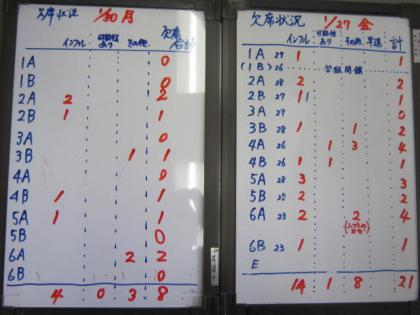 欠席状況 1/30 月
インフル 可能性あり その他 欠席合計
1A 0
1B 0
2A 2 2
2B 1 1
3A 0
3B 1 1
4A 0
4B 1 1
5A 1 1
5B 0
6A 2 2
6B 0
4 0 3 8
欠席状況 1/27 金
インフル 可能性あり その他 早退 計
1A 29 1 1
(1B) 26 学級閉鎖
2A 28 2 2
2B 27 11
3A 27 0
3B 28 1 1 2
4A 26 1 3 4
4B 26 1 1
5A 28 3 3
5B 28 2 2
6A 23 2 2 4
6B 23 1 1
E
14 1 8 21